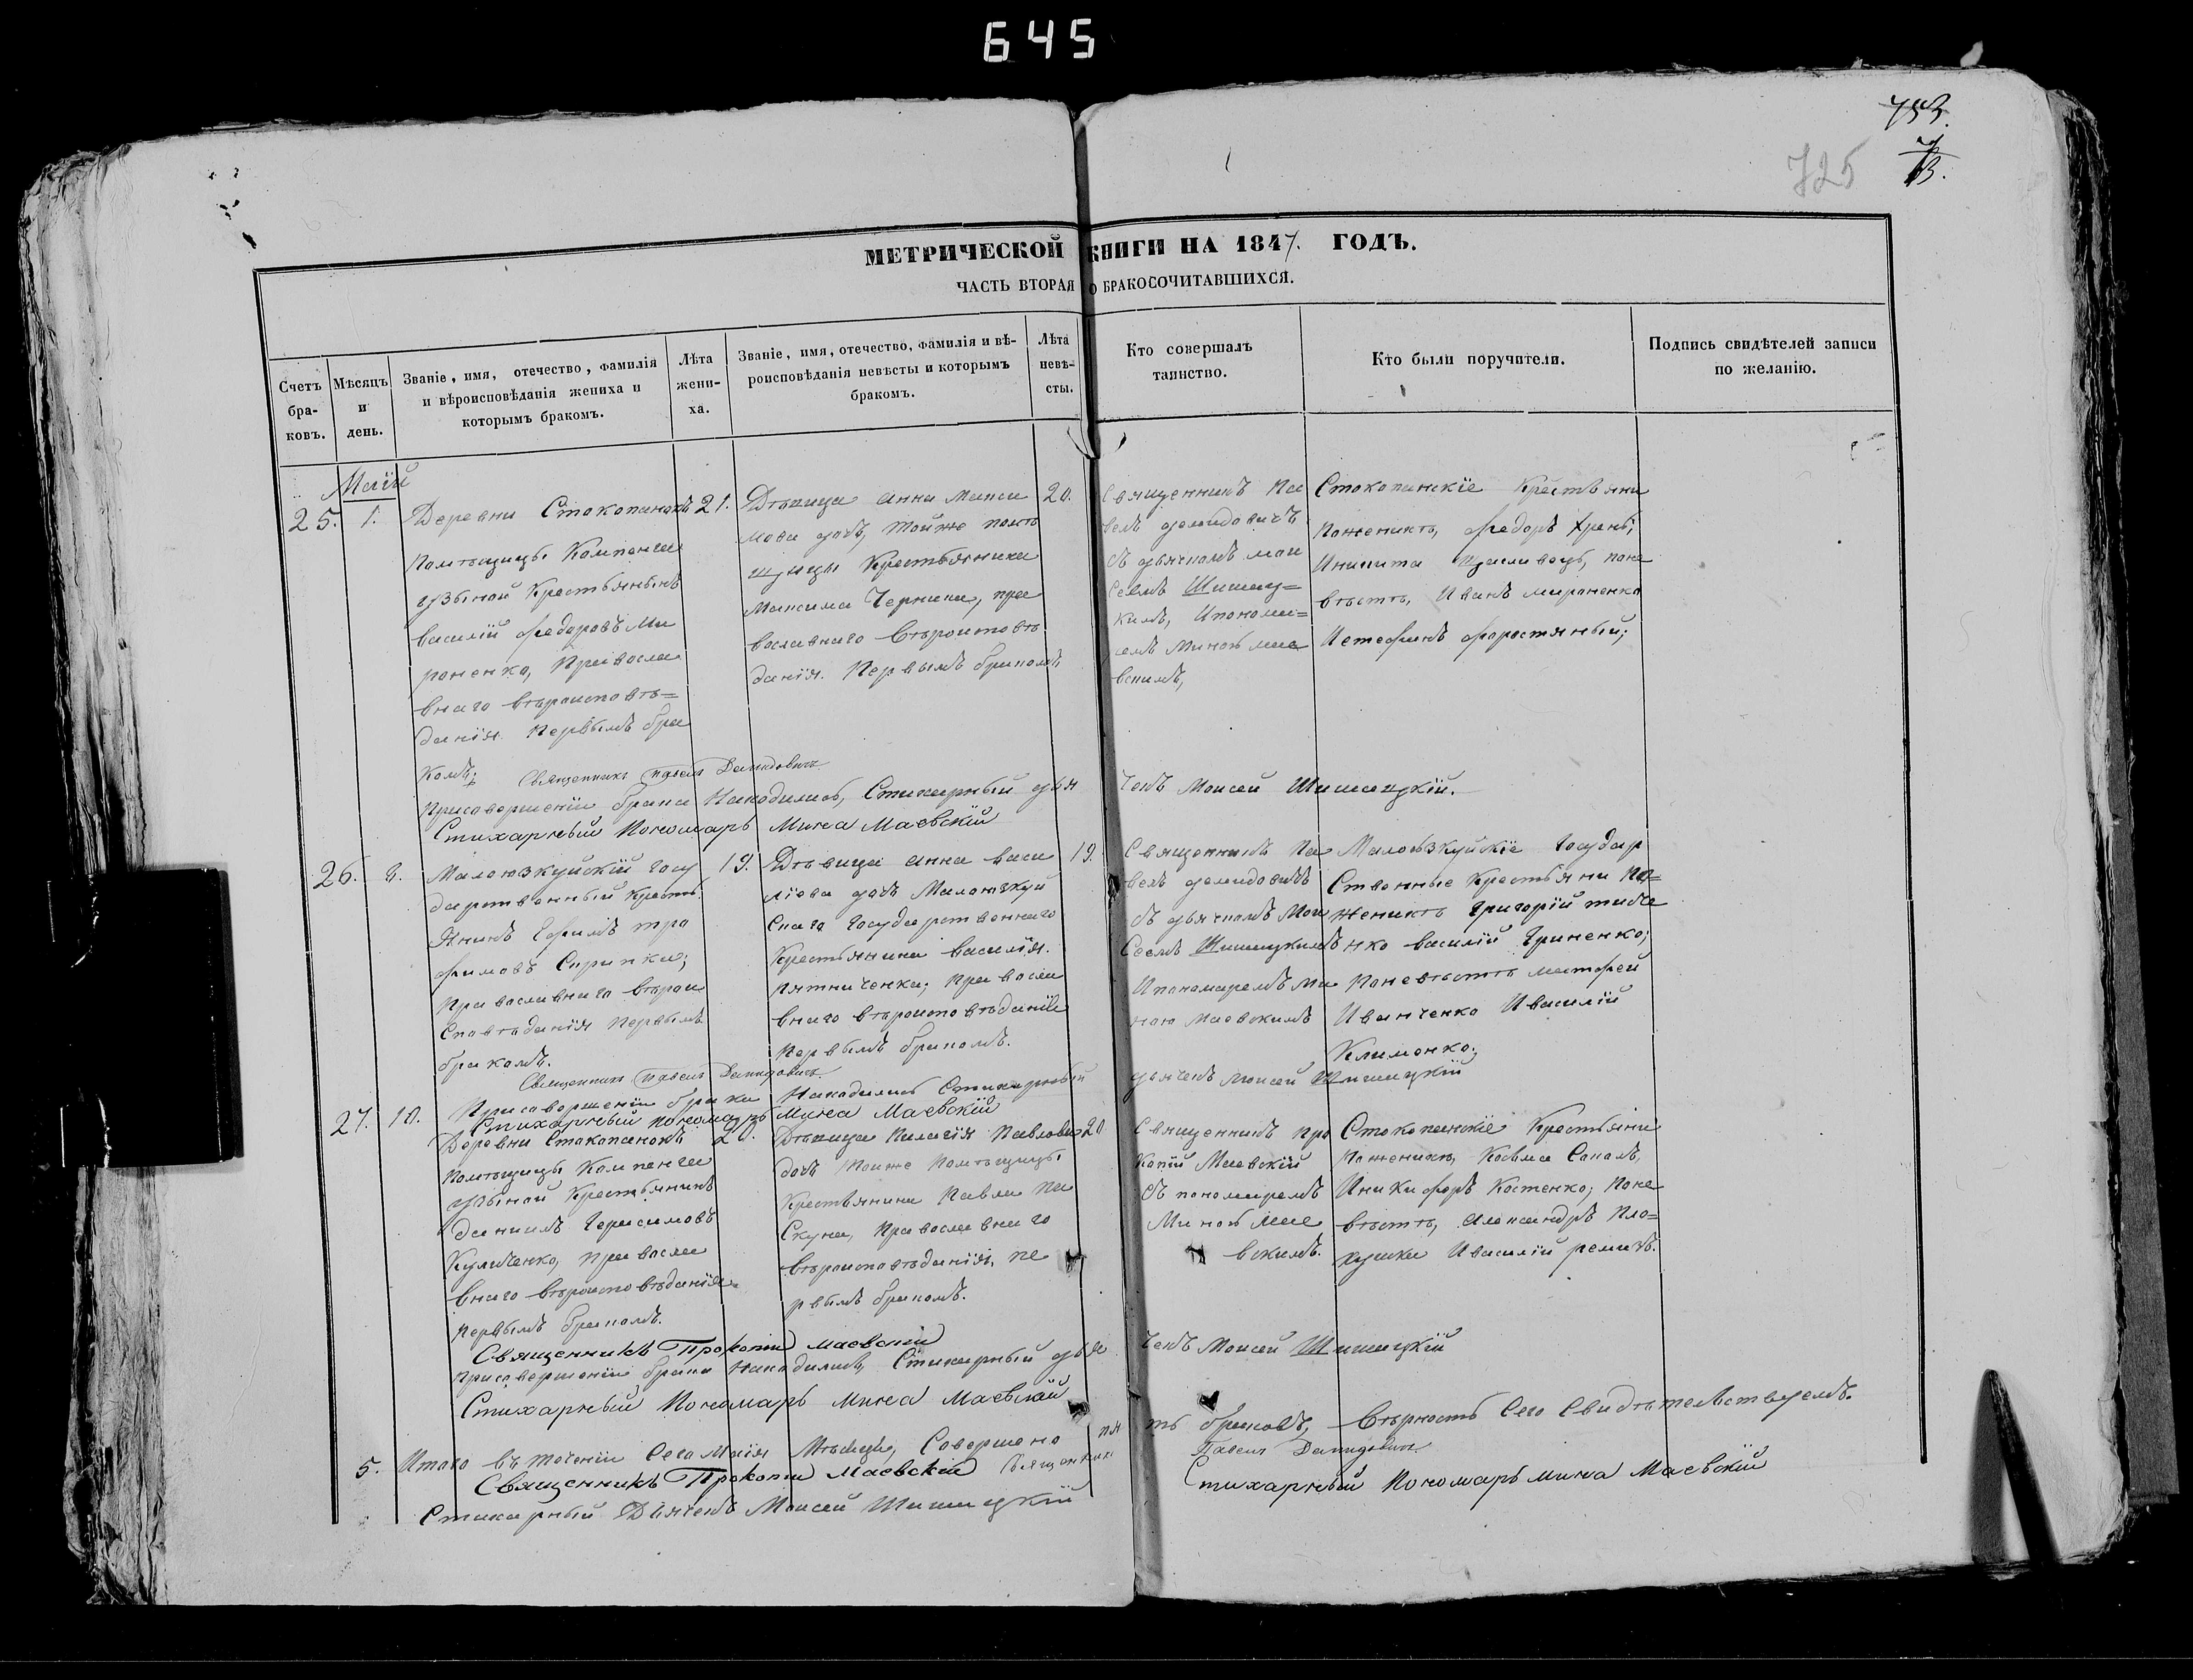 645
753.
725
МЕТРИЧЕСКОЙ КНИГИ НА 1847. ГОДЪ.
ЧАСТЬ ВТОРАЯ О БРАКОСОЧИТАВШИХСЯ.
Счетъ бра-ковъ.
Мѣсяцъ и день.
Званіе, имя, отечество, фамилія и вѣроисповѣданія жениха и которымъ бракомъ.
Лѣта жени-ха.
Званіе, имя, отечество, фамилія и вѣ-роисповѣданія невѣсты и которымъ бракомъ.
Лѣта невѣ-сты.
Кто совершалъ таинство.
Кто были поручители.
Подпись свидѣтелей записи по желанію.
Маій
25. 1.
Деревни Стокопанокъ
Помѣщицы Компанеи
щзьиной Крестьянинъ
Василій Федоровъ Ми
роненко, Правосла
внаго вѣроисповѣ=
данія Первымъ бра
комъ;
21.
Дѣвица Анна Макси
мова дочь, тойже помѣ
щицы Крестьянина
Максима Черники, пра
вославнаго вѣроисповѣ
данія. Первымъ бракомъ
20.
Священникъ Па
велъ Демидовичъ
съ дьячкомъ Мои
сеемъ Шишац=
кимъ, Ипонома=
ремъ Миною Мае
вскимъ,
Стокопанскіе Крестьяни
Поженихѣ, Федоръ Хрень,
Иникита Красивецъ, поне
вѣстѣ, Иванъ Мироненко
Истефанъ Форостяный;
Священникъ Павелъ Демидовичъ
Присовершеніи брака Находились, Стихарный дья
чекъ Моисей Шишацкій.
Стихарный Пономарь Мина Маевскій
26. 8.
Малоюзкуйскій Госу
дарственный Кресть
янинъ Ефимъ тро
фимовъ Скрипка;
Православнаго вѣрои
сповѣданія Первымъ
бракомъ.
19.
Дѣвица Анна Васи
ліева дочь Малоюзкуй
скаго Государственнаго
Крестьянина Василія
Пятниченка; Правосла
внаго вѣроисповѣданія
Первымъ бракомъ.
19.
Священникъ Па
велъ Демидовичъ
съ дьячкомъ Мои
сеемъ Шишацкимъ
Ипономаремъ Ми
ною Маевскимъ
Малоюзкуйскіе Государ
ственные Крестьяни По=
женихѣ Григорій тимче
нко Василій Гриненко;
Поневѣстѣ Матфей
Иванченко Ивасилій
Клименко;
Священникъ Павелъ Демидовичъ
Присовершеніи брака Находились Стихарный
дьячекъ Моисей Шишацкій
Стихарный пономарь Мина Маевскій
27. 10.
Деревни Стокопанокъ
Помѣщицы Компанеи
щзьиной Крестьянинъ
Даниилъ Герасимовъ
Куличенко, Правосла
внаго вѣроисповѣданія
первымъ бракомъ.
20.
Дѣвица Пилагія Павлова
дочь тойже Помѣщицы
Крестьянина Павла Па
скуна, Православнаго
вѣроисповѣданія, пе
рвымъ бракомъ.
20
Священникъ Про
копій Маевскій
съ пономаремъ
Миною Мае
вскимъ.
Стокопанскіе Крестьяни
Поженихѣ, Косьма Сокалъ,
Иникифоръ Костенко; Поне
вѣстѣ, Александръ Пло=
хушка Ивасилій ремизъ.
Священникъ Прокопій Маевскій
Присовершеніи брака Находились, Стихарный дья
чекъ Моисей Шишацкій
Стихарный Пономарь Мина Маевскій
5. Итого въ теченіи Сего Маія Мѣсяца, Совершено пя
ть браковъ, Вѣрность Сего Свидѣтельствуемъ.
Священникъ Прокопій Маевскій Священникъ
Павелъ Демидовичъ
Стихарный Дьячекъ Моисей Шишацкій
Стихарный Пономарь Мина Маевскій